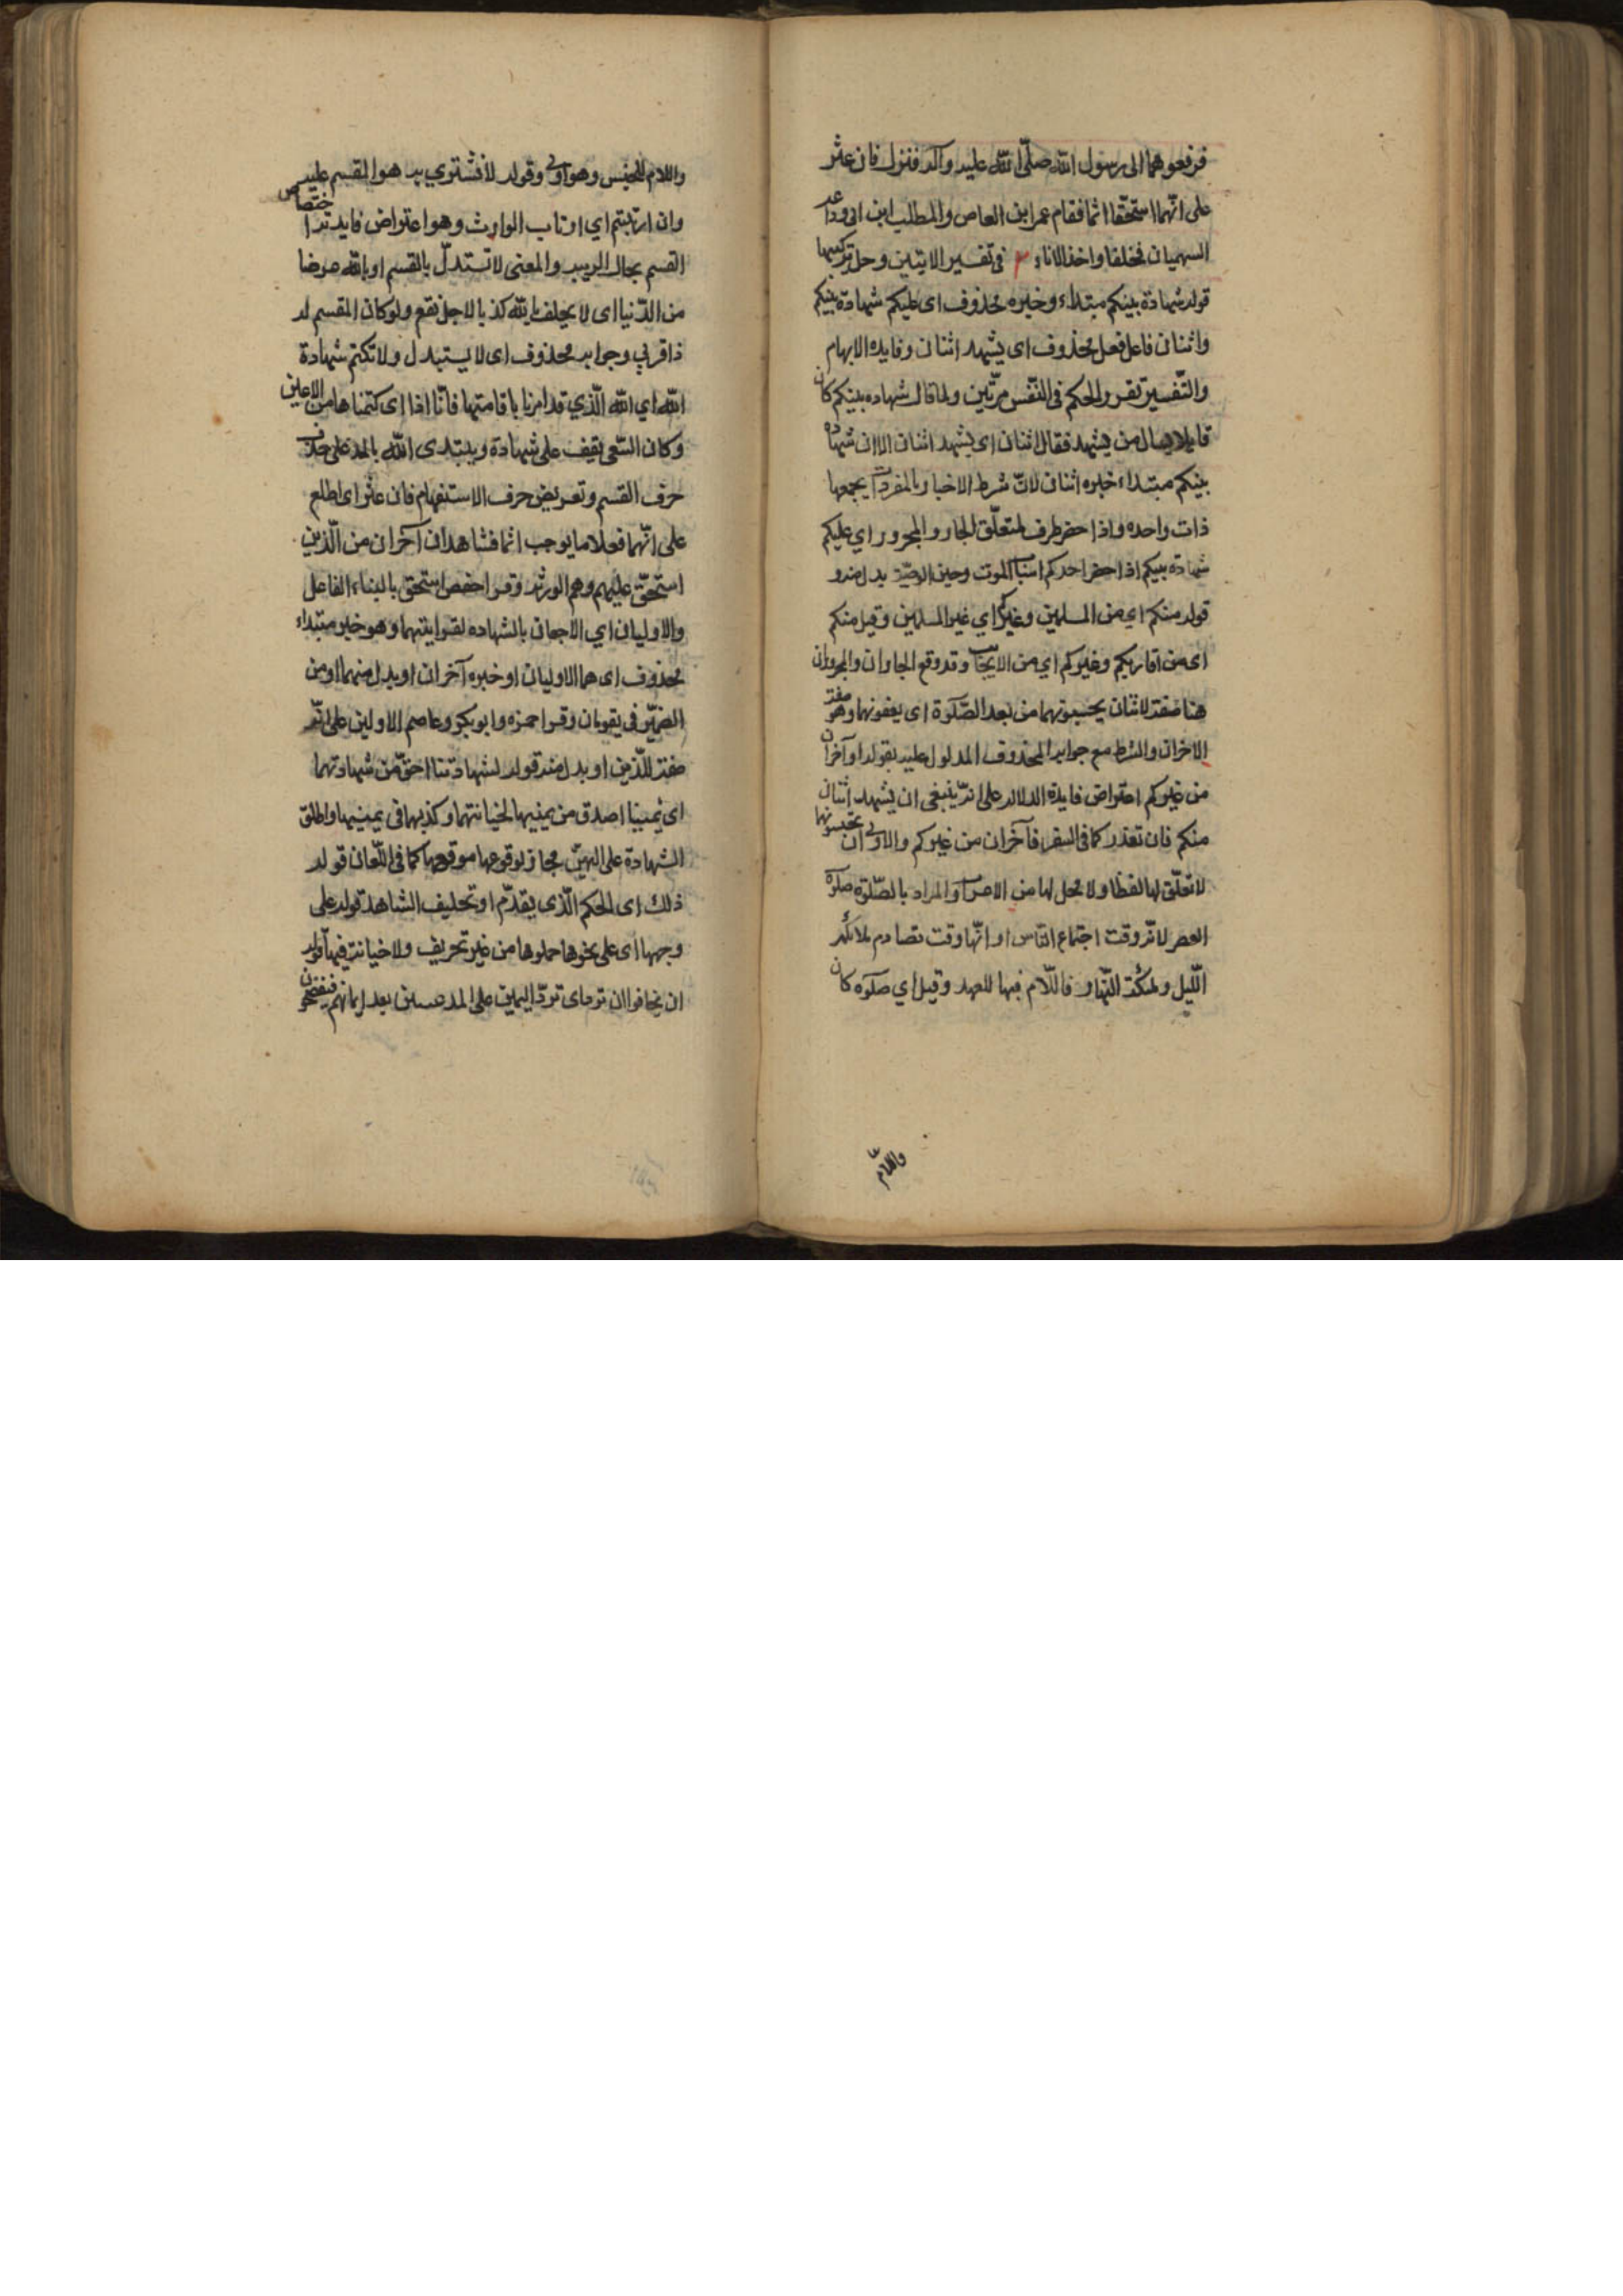 فرفعوهما الى رسول الله صلّى الله عليه وآله فنزل فان عثر
على انّهما استحقّا اثما فقام عمر ابن العاص والمطلب ابن ابى وداعه
السهميان فحلفا واخذ الاناء ٣ فى تفسير الايتين وحل تركيبها
قوله شهادة بينكم مبتداء وخبره محذوف اى عليكم شهادة بينكم
واثنان فاعل فعل محذوف اى يشهد اثنان وفايده الابهام
والتّفسير تقرر الحكم فى النّفس مرّتين ولما قال شهاده بينكم كان
قايلا يسال من يشهد فقال اثنان اى يشهد اثنان الا ان شهاده
بينكم مبتداء خبره اثنان لانّ شرط الاخبار بالمفرد ان يجمعها
ذات واحده واذا حضر ظرف لمتعلّق الجار والمجرور اي عليكم
شهادة بينكم اذا حضر احدكم اسباب الموت وحين الوصيّة بدل منه و
قوله منكم اي من المسلمين وغيركم اي غير المسلمين وقيل منكم
اى من اقاربكم وغيركم اي من الاجانب وقد وقع الجاران والمجروران
هنا صفة لاثنان يحسبونهما من بعد الصّلوة اى يقفونهما وهو صفة
الاخران والشرط مع جوابه المحذوف المدلول عليه بقوله او آخران
من غيركم اعتراض فايدة الدلاله على انّه ينبغى ان يشهد اثنان
منكم فان تعذر كما فى السفر فآخران من غيركم والاولى ان تحبسونهما
لا تعلّق لها لفظا ولا محل لها من الاعراب والمراد بالصّلوة صلوة
العصر لانّه وقت اجتماع النّاس او انّها وقت تصادم ملائكة
اللّيل وملائكة النّهار فاللّام فيها للعهد وقيل اي صلوة كان
واللّام
واللام للجنس وهو اولى وقوله لا نشتري به هو المقسم عليه
وان ارتبتم اي ارتاب الوارث وهو اعتراض فايدته اختصاص
القسم بحال الريب والمعنى لا نستبدل بالقسم او بالله عرضا
من الدّنيا اى لا يحلف بالله كذبا لاجل نفع ولو كان المقسم له
ذا قربي وجوابه محذوف اى لا يستبدل ولا تكتم شهادة
الله اي الله الّذي قد امرنا باقامتها فانّا اذا اى كتمناها من الاعين
وكان الشّعبى يقف على شهادة ويبتدى الله بالمد على حذف
حرف القسم وتعريض حرف الاستفهام فان عثر اى اطلع
على انّهما فعلا ما يوجب اثما فشاهدان آخران من الّذين
استحقّ عليهم وهم الورثه وقرا حفص استحق بالبناء الفاعل
والاوليان اي الاحقان بالشهاده لقرابتهما وهو خبر مبتداء
محذوف اى هما الاوليان او خبره آخران او بدل منهما او من
الضمير فى يقومان وقرا حمزه وابو بكر وعاصم الاولين على انّه
صفة للّذين او بدل منه قوله لشهادتنا احقّ من شهادتهما
اى يميننا اصدق من يمينهما لخيانتهما وكذبهما فى يمينهما واطلق
الشهادة على اليمين مجاز لوقوعها موقعها كما فى اللّعان قوله
ذلك اى الحكم الّذى يقدّم او تحليف الشاهد قوله على
وجهها اى على نحوها حملوها من غير تحريف ولا خيانة فيها قوله
ان يخافوا ان تر ماى تردّ اليمين على المدعيين بعد ايمانهم فيفتضحون